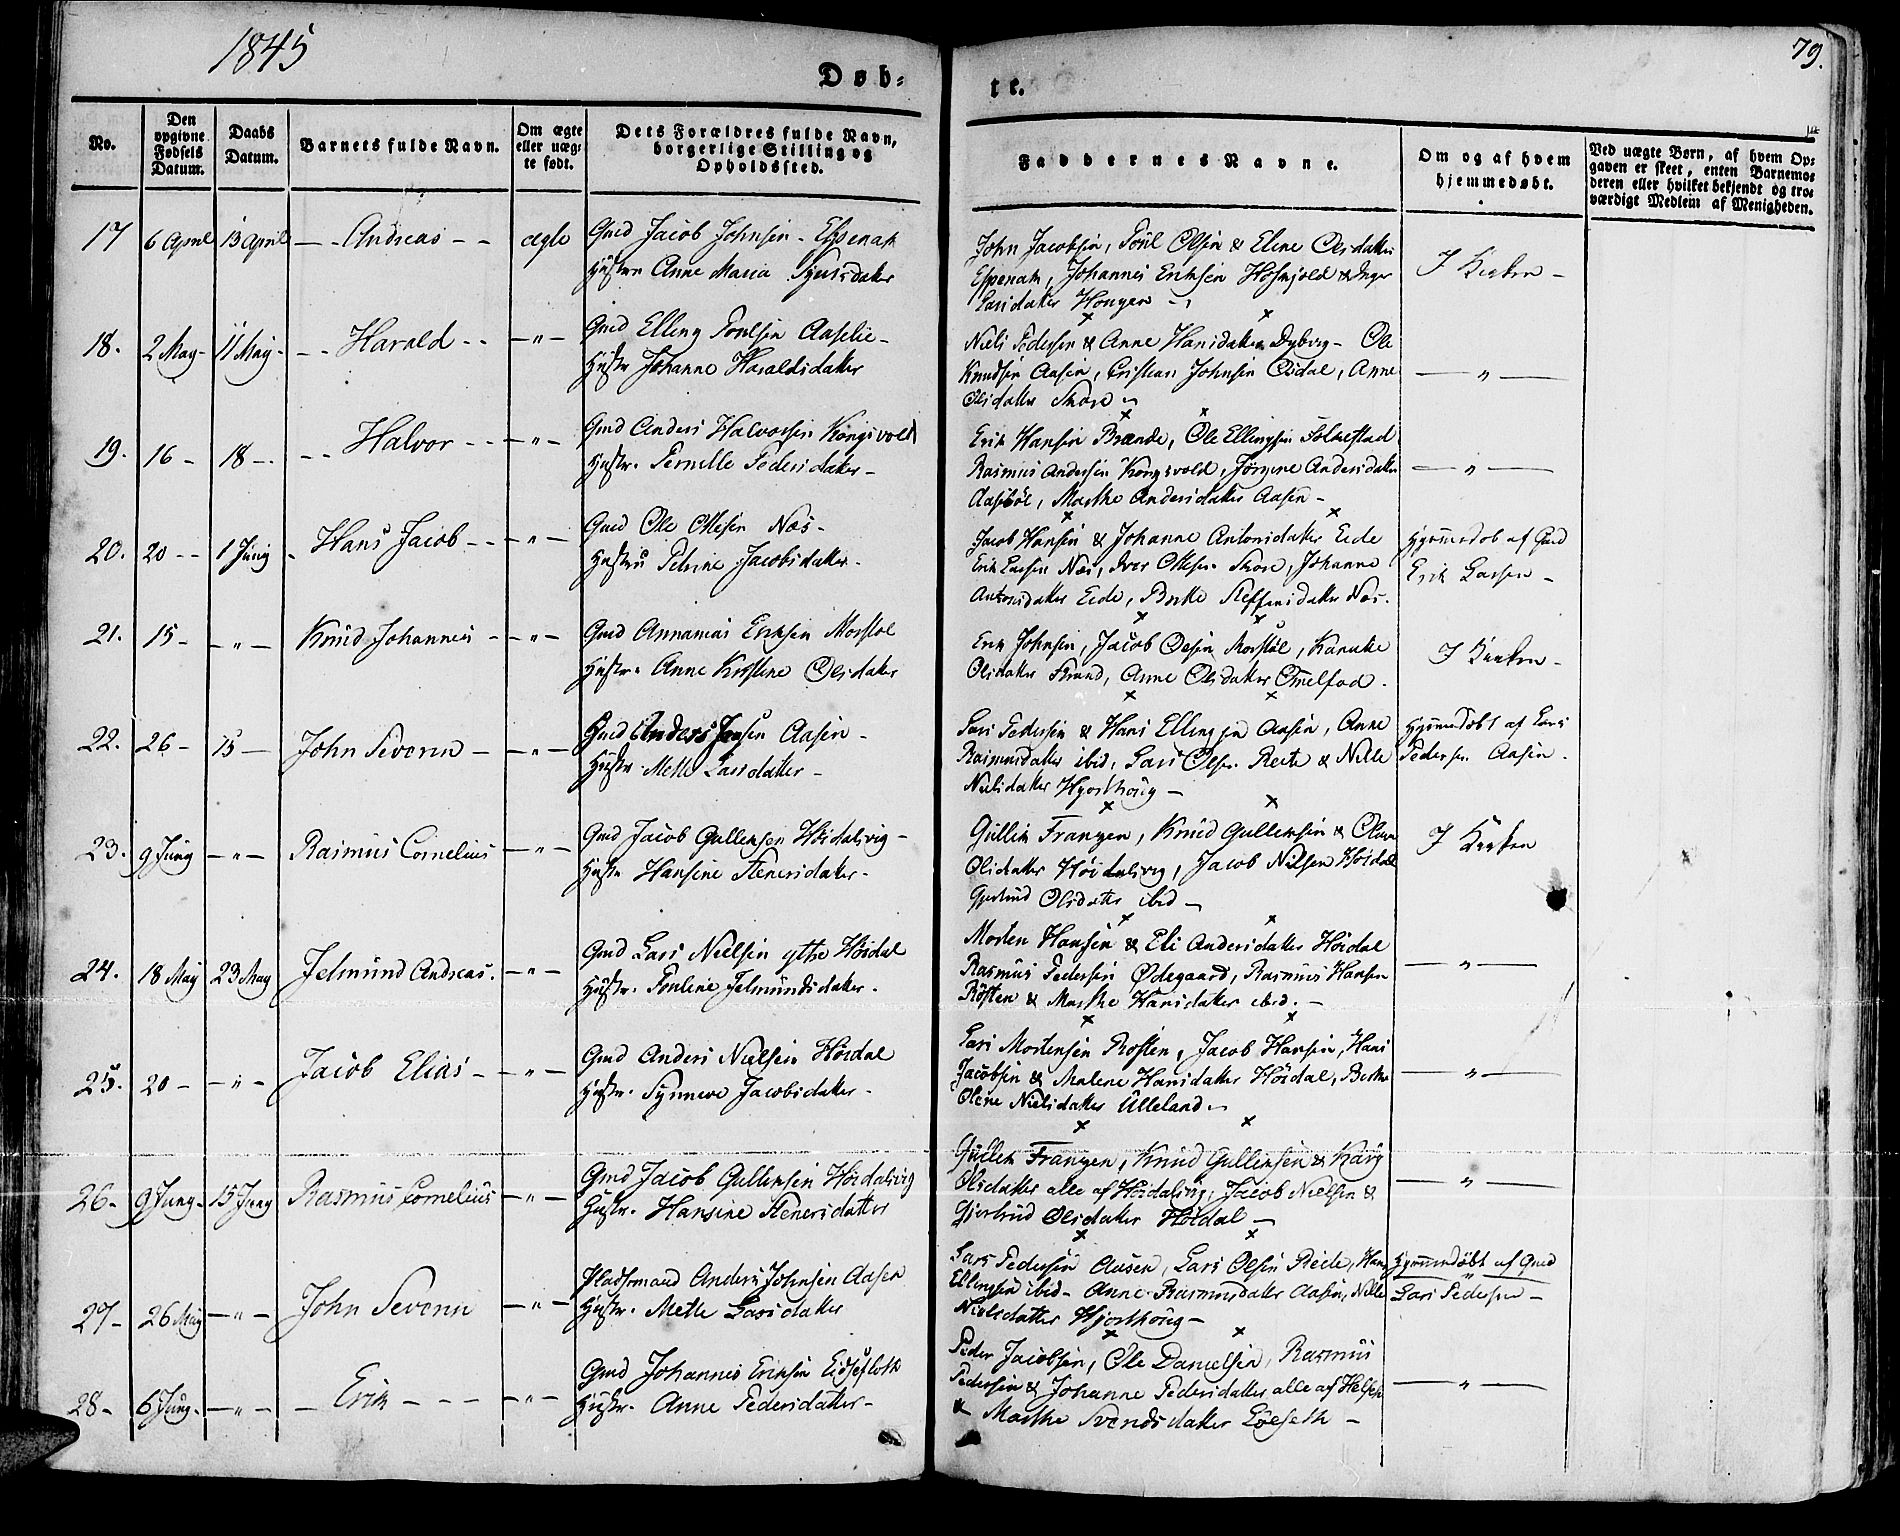 1845
79.
Døb-
te.
No.
Den opgivne Fødsels Datum.
Daabs Datum.
Barnets fulde Navn.
Om ægte eller uægte født.
Dets Forældres fulde Navn, borgerlige Stilling og Opholdssted.
Faddernes Navne.
Om og af hvem hjemmedøbt.
Ved uægte Børn, af hvem Opgaven er skeet, enten Barnemoderen eller hvilket bekjendt og troværdigt Medlem af Menigheden.
17 6 April 13 April Andreas ægte Gmd Jacob Johnsen Espenak
Hustru Anne Maria
John Jacobsen, Poul Olsen & Eline Olsdatter
Espenak, Johannes Eriksen & Inger
Larsdatter Hougen
I Kirken
18. 2 May 11 May Harald - " - Gmd Elling Poulsen Aaselie
Hustr Johanne Haraldsdatter
Niels Pedersen & Anne Hansdatter Dybvig - Ole
Knudsen Aasen, Cristian Johnsen Osdal, Anne
Olsdatter Skare
- " -
19. 16 - 18 - Halvor - " - Gmd Anders Halvorsen Kongsvold
Hustr. Pernille Pedersdatter -
Erik Hansen Brænde, Ole Ellingsen Folkestad
Rasmus Andersen Kongsvold, Jørgine Andersdatter
Marthe Andersdatter Aasen -
- " -
20. 20 - 1 Juny Hans Jacob - " - Gmd Ole Ottesen Næs -
Hustru Petrine Jacobsdatter -
Jacob Hansen & Johanne Antonsdatter Eide
Erik Larsen Næs, Iver Ottesen Skare, Johanne
Antonsdatter Eide, Berthe Steffensdatter Næs.
Hjemmedøb af Gmd
Erik Larsen -
21. 15 - - " - Knud Johannes - " - Gmd Annanias Eriksen Morstøl
Hustr. Anne Kirstine Olsdatter
Erik Johnsen, Jacob Olsen Morstøl,
Olsdatter Strand, Anne Olsdatter
I Kirken -
22. 26 - 15 - John Severin - " - Gmd Anders Jensen Aasen -
Hustr. Mette Larsdatter -
Lars Pedersen & Hans Ellingsen Aasen, Anne
Rasmusdatter ibid, Lars Olsen Reite & Nille
Nielsdatter Hjorthoug -
Hjemmedøbt af Lars
Pedersen Aasen -
23. 9 Juny - " - Rasmus Cornelius - " - Gmd Jacob Gulleksen Höidalsvig -
Hustr Hansine Stenersdatter -
Gullik Frantzen, Knud Gulleksen &
Olsdatter Höidalsvig, Jacob Nielsen Höidal
Gjertrud Olsdatter ibid -
I Kirken
24. 18 May 23 May Jetmund Andreas. - " - Gmd Lars Nielsen ytre Höidal
Hustr. Pouline Jetmundsdatter -
Morten Hansen & Eli Andersdatter Höidal
Rasmus Pedersen Ødegaard, Rasmus Hansen
Røsten & Marthe Hansdatter ibid. -
- " -
25. 20 - - " - Jacob Elias - - " - Gmd Anders Nielsen Höidal
Hustr. Synneve Jacobsdatter -
Lars Mortensen Røsten, Jacob Hansen, Hans
Jacobsen & Malene Hansdatter Höidal, Berthe
Olene Nielsdatter Ulleland -
- " -
26 - 9 Juny - 15 Juny Rasmus Cornelius - " - Gmd Jacob Gulleksen Höidalsvig
Hustr. Hansine Stenersdatter
Gullik Frantzen, Knud Gulleksen & Kary
Olsdatter alle af Höidalsvig, Jacob Nielsen &
Gjertrud Olsdatter Höidal -
- " -
27 - 26 May - " - John Severin - " - Pladsmand Anders Johnsen Aasen
Hustr. Mette Larsdatter
Lars Pedersen Aasen, Lars Olsen Reite, Hans
Ellingsen ibid - Anne Rasmusdatter Aasen, Nille
Nielsdatter Hjorthoug -
Hjemmedöbt af Gmd
Lars Pedersen -
28 - 6 Juny - - " - Erik - - - - " - Gmd Johannes Eriksen
Hustr. Anne Pedersdatter -
Peder Jacobsen, Ole Danielsen, Rasmus
Pedersen & Johanne Pedersdatter alle af
& Marthe Svendsdatter Löeseth -
- " -